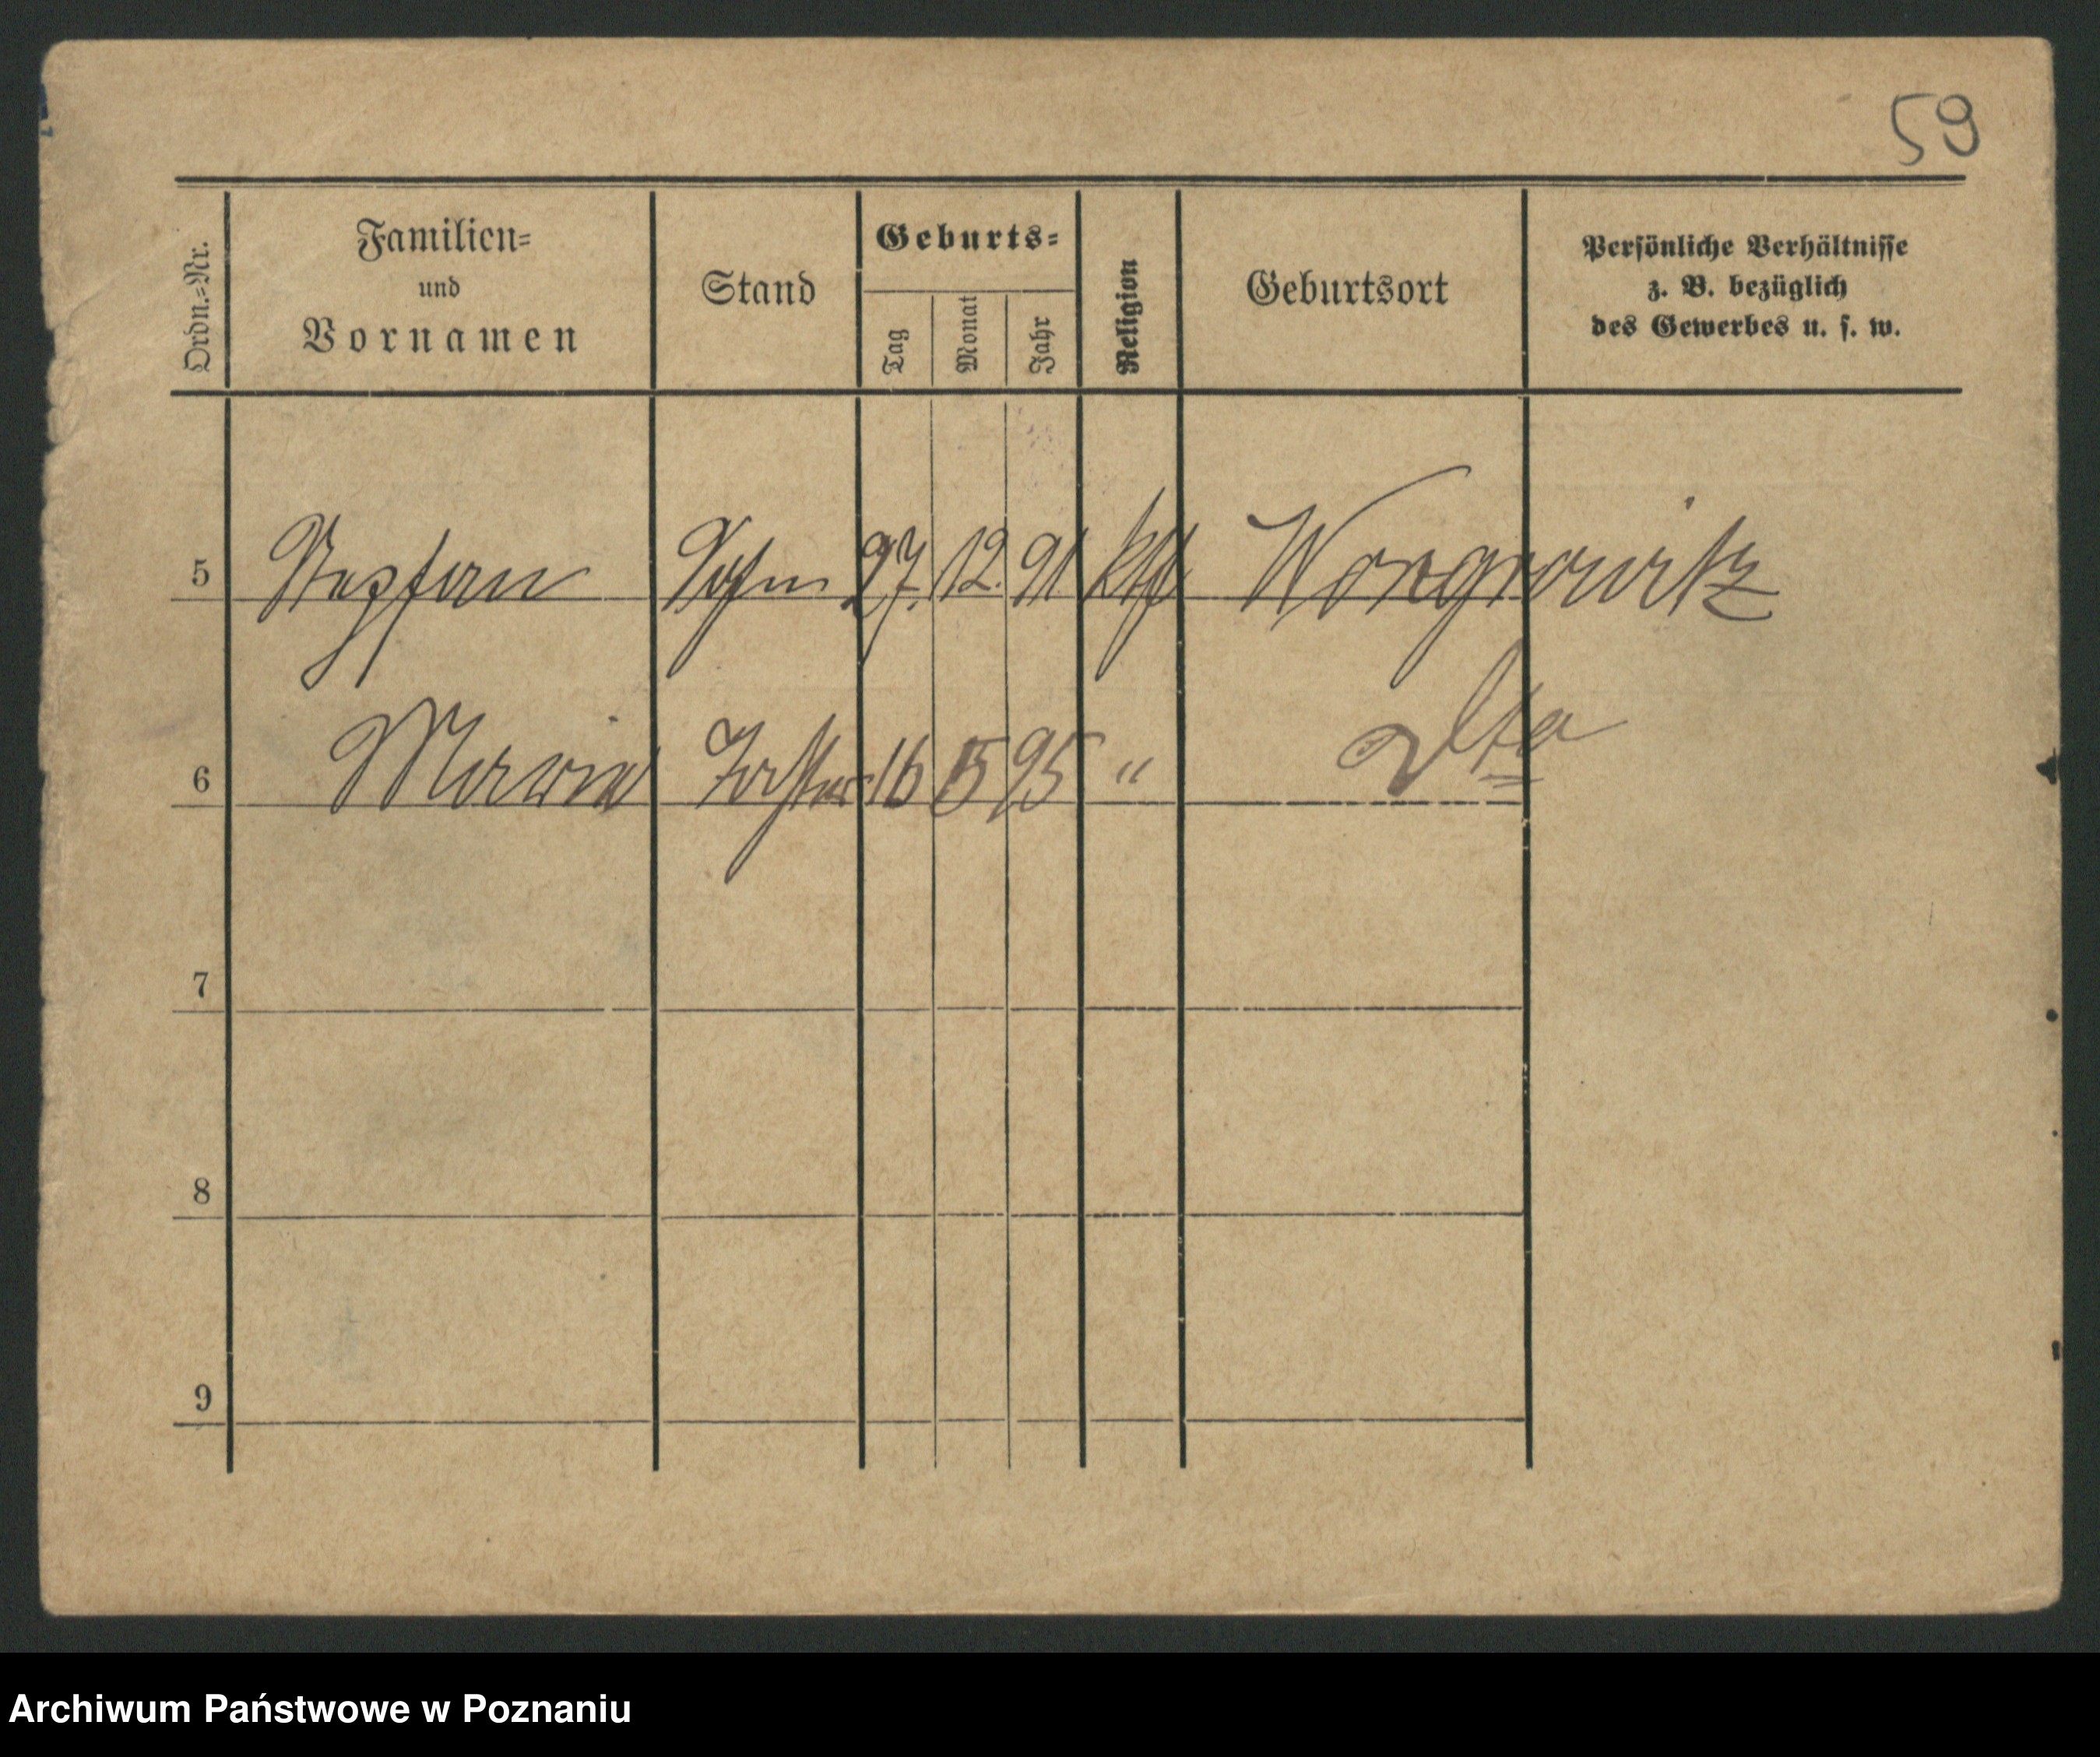 59
Ordn.=Nr.
Familien=
und
Vornamen
Stand
Geburts=
Tag
Monat
Jahr
Religion
Geburtsort
Persönliche Verhältnisse
z. B. bezüglich
des Gewerbes u. s. w.
5 Sohn 27. 12. 91 kth Wongrowitz
6 Maria Tochter 16 5 95 " Dto
7
8
9
Archiwum Państwowe w Poznaniu